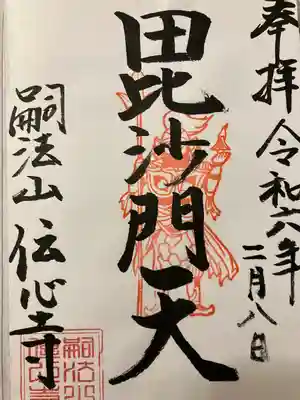 奉拝 令和六年
二月八日
毘沙門天
嗣法山 伝心寺